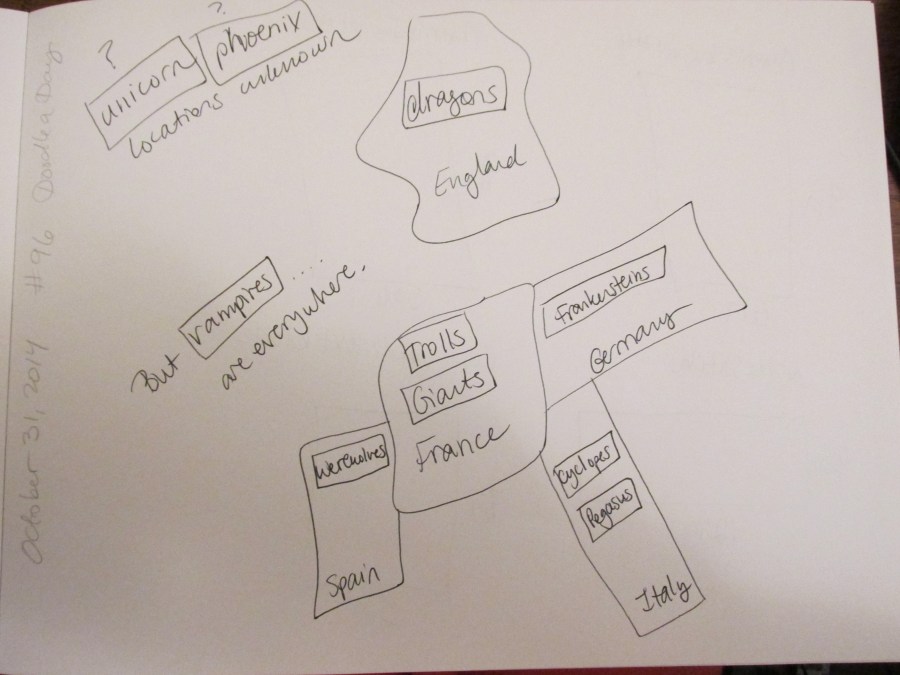 ? ?
unicorn phoenix
locations unknown
dragons
England
But vampires ....
are everywhere.
Frankensteins
Germany
Trolls
Giants
France
Werewolves
Spain
Cyclopes
Pegasus
Italy
October 31, 2014 #96 Doodle a Day